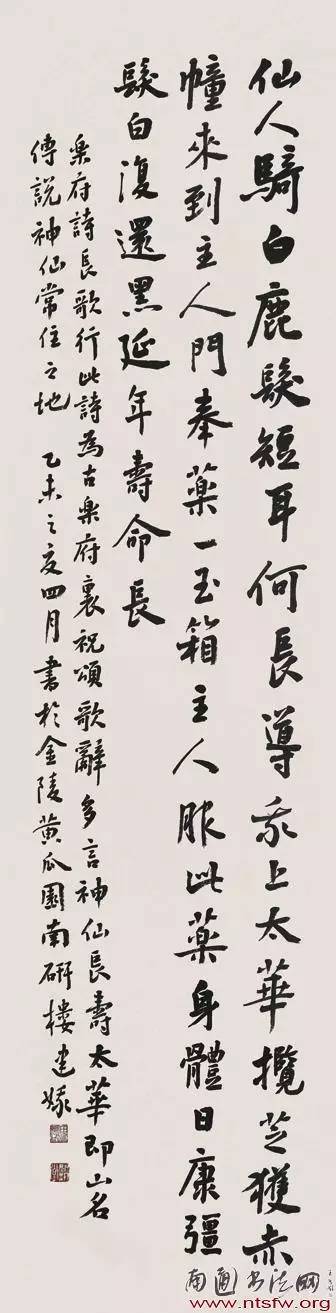 仙人騎白鹿髮短耳何長導我上太華攬芝獲赤
幢來到主人門奉藥一玉箱主人服此藥身體日康彊
髮白復還黑延年壽命長
樂府詩長歌行此詩為古樂府裏祝頌歌辭多言神仙長壽太華即山名
傳說神仙常住之地 乙未之夏四月書於金陵黃瓜園南研樓建
南通书法网
www.ntsfw.org